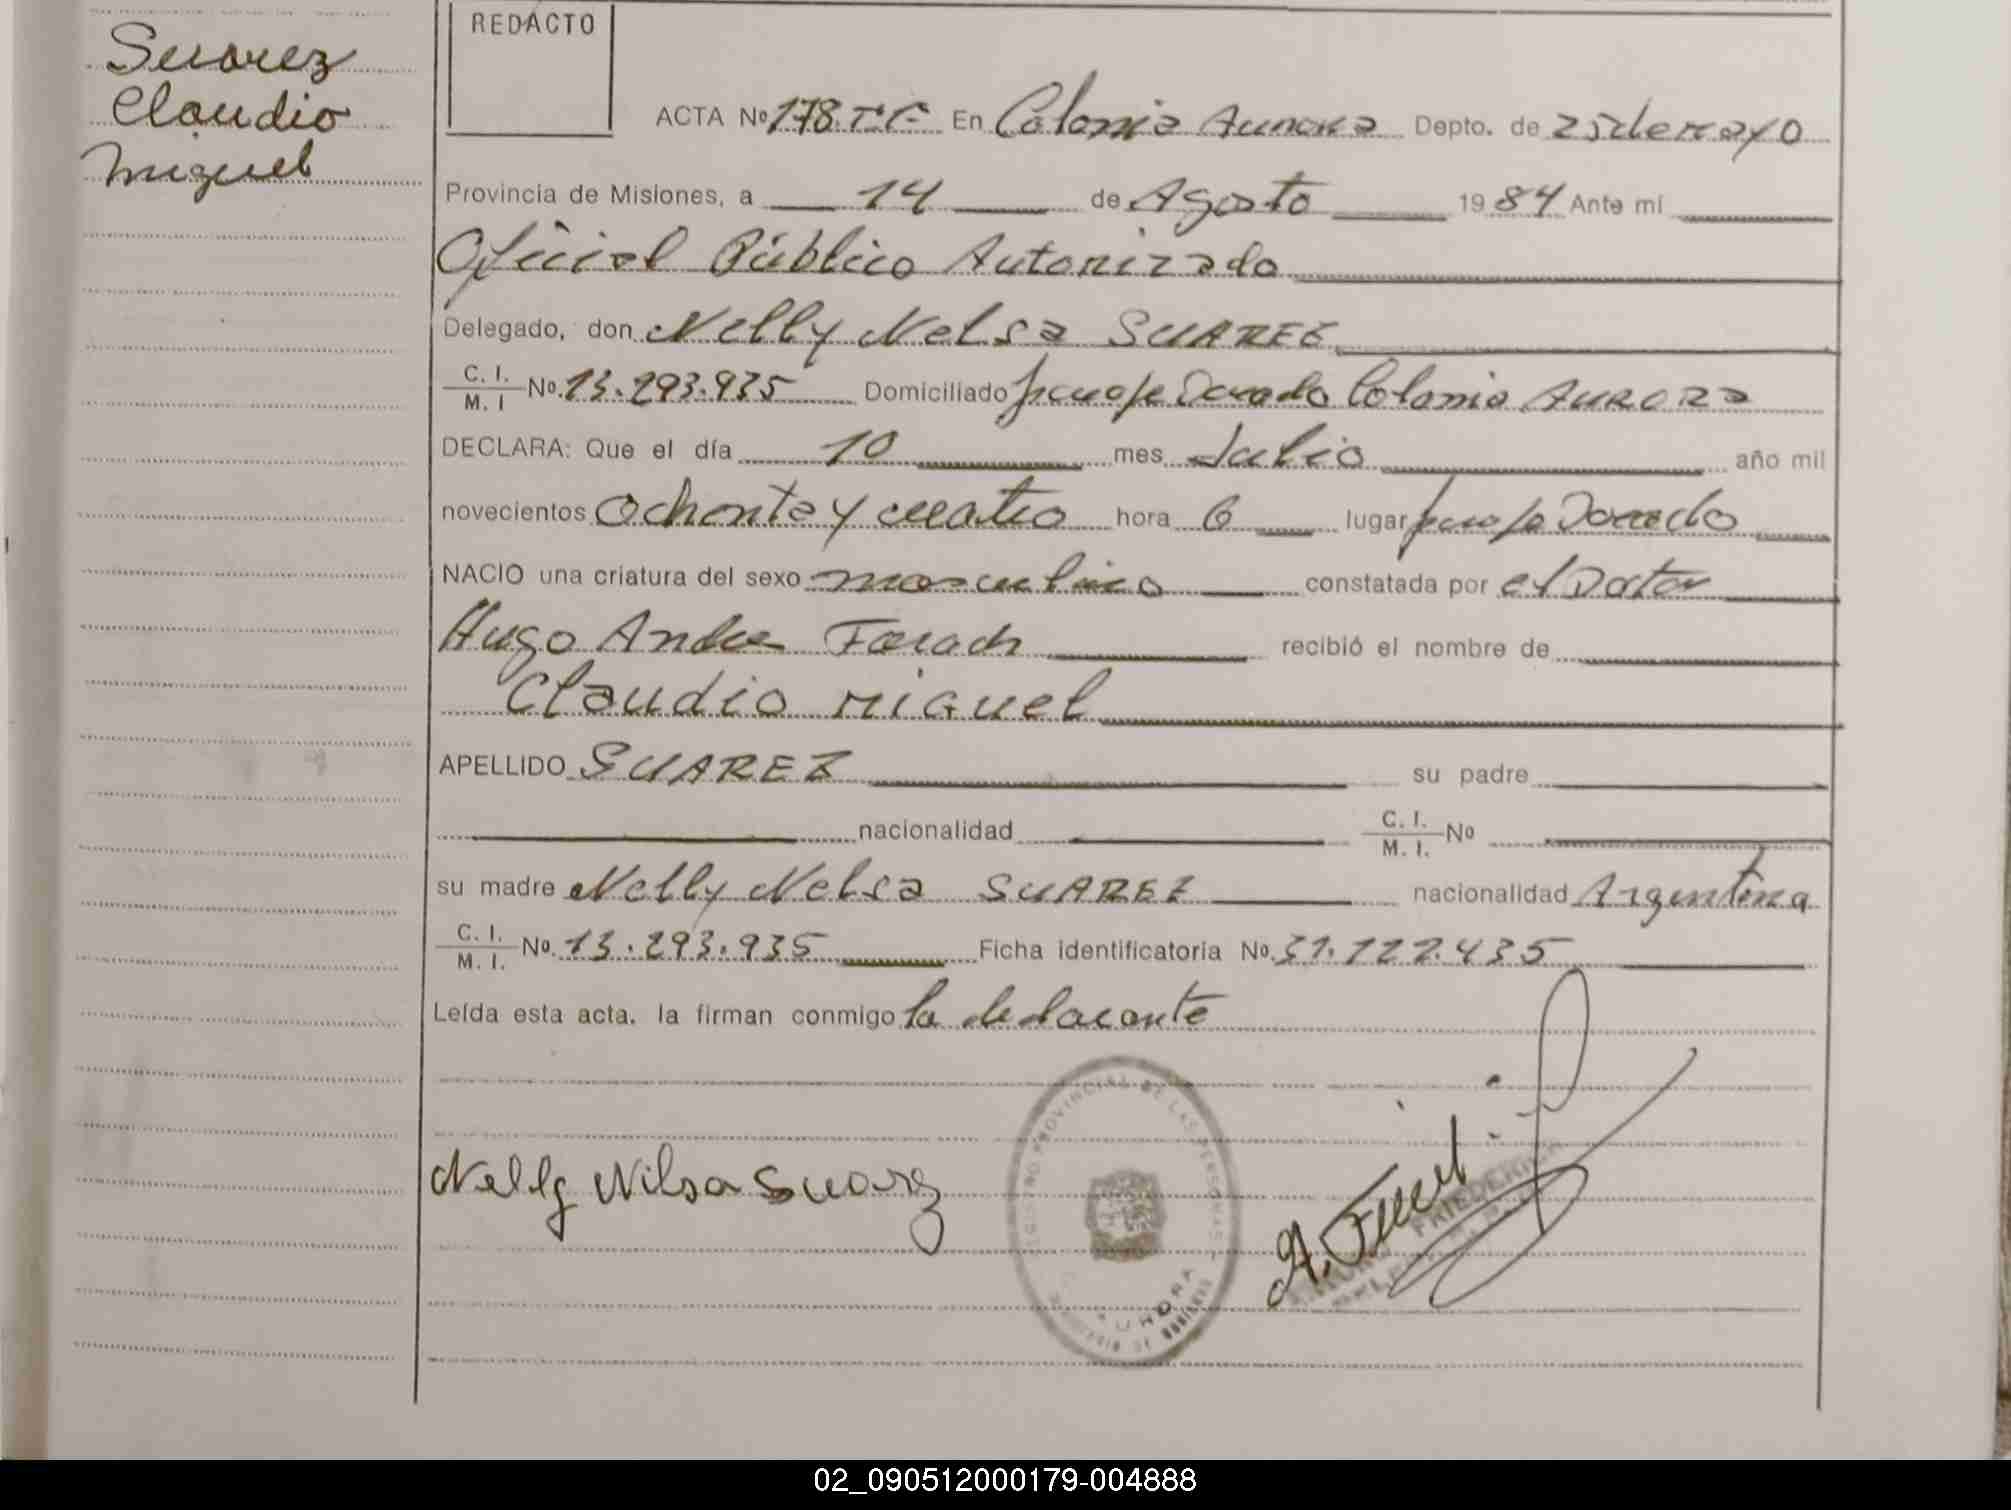 Suarez
Claudio
Miguel
REDACTO
ACTA Nº 178. T.C. En Colonia Aurora Depto. de 25 de mayo
Provincia de Misiones, a 14 de Agosto 1984 Ante mí
Oficial Público Autorizado
Delegado, don Nelly Nelsa SUAREZ
C. I. / M. I Nº 13.293.935 Domiciliado Dorado Colonia Aurora
DECLARA: Que el día 10 mes Julio año mil
novecientos Ochenta y cuatro hora 6 lugar Dorado
NACIO una criatura del sexo masculino constatada por el Doctor
Hugo Andre recibió el nombre de
Claudio Miguel
APELLIDO SUAREZ su padre
nacionalidad C. I. / M. I. Nº
su madre Nelly Nelsa SUAREZ nacionalidad Argentina
C. I. / M. I. Nº 13.293.935 Ficha identificatoria Nº 31.122.435
Leída esta acta, la firman conmigo la declarante
Nelly Nilsa Suarez
REGISTRO PROVINCIAL DE LAS PERSONAS
AURORA
MINISTERIO DE GOBIERNO
FRIEDERICH
02_090512000179-004888